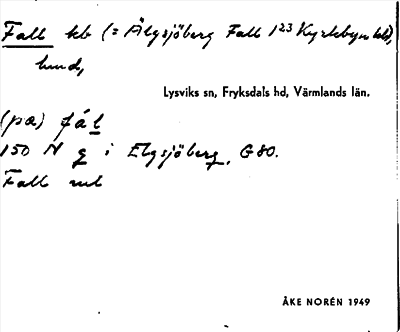 Fall kb (= Älgsjöberg Fall 1²³ Kyrkbyn kb),
hmd,
Lysviks sn, Fryksdals hd, Värmlands län.
(pa) fál
150 N g i Elgsjöberg, G 80.
Fall
ÅKE NORÉN 1949